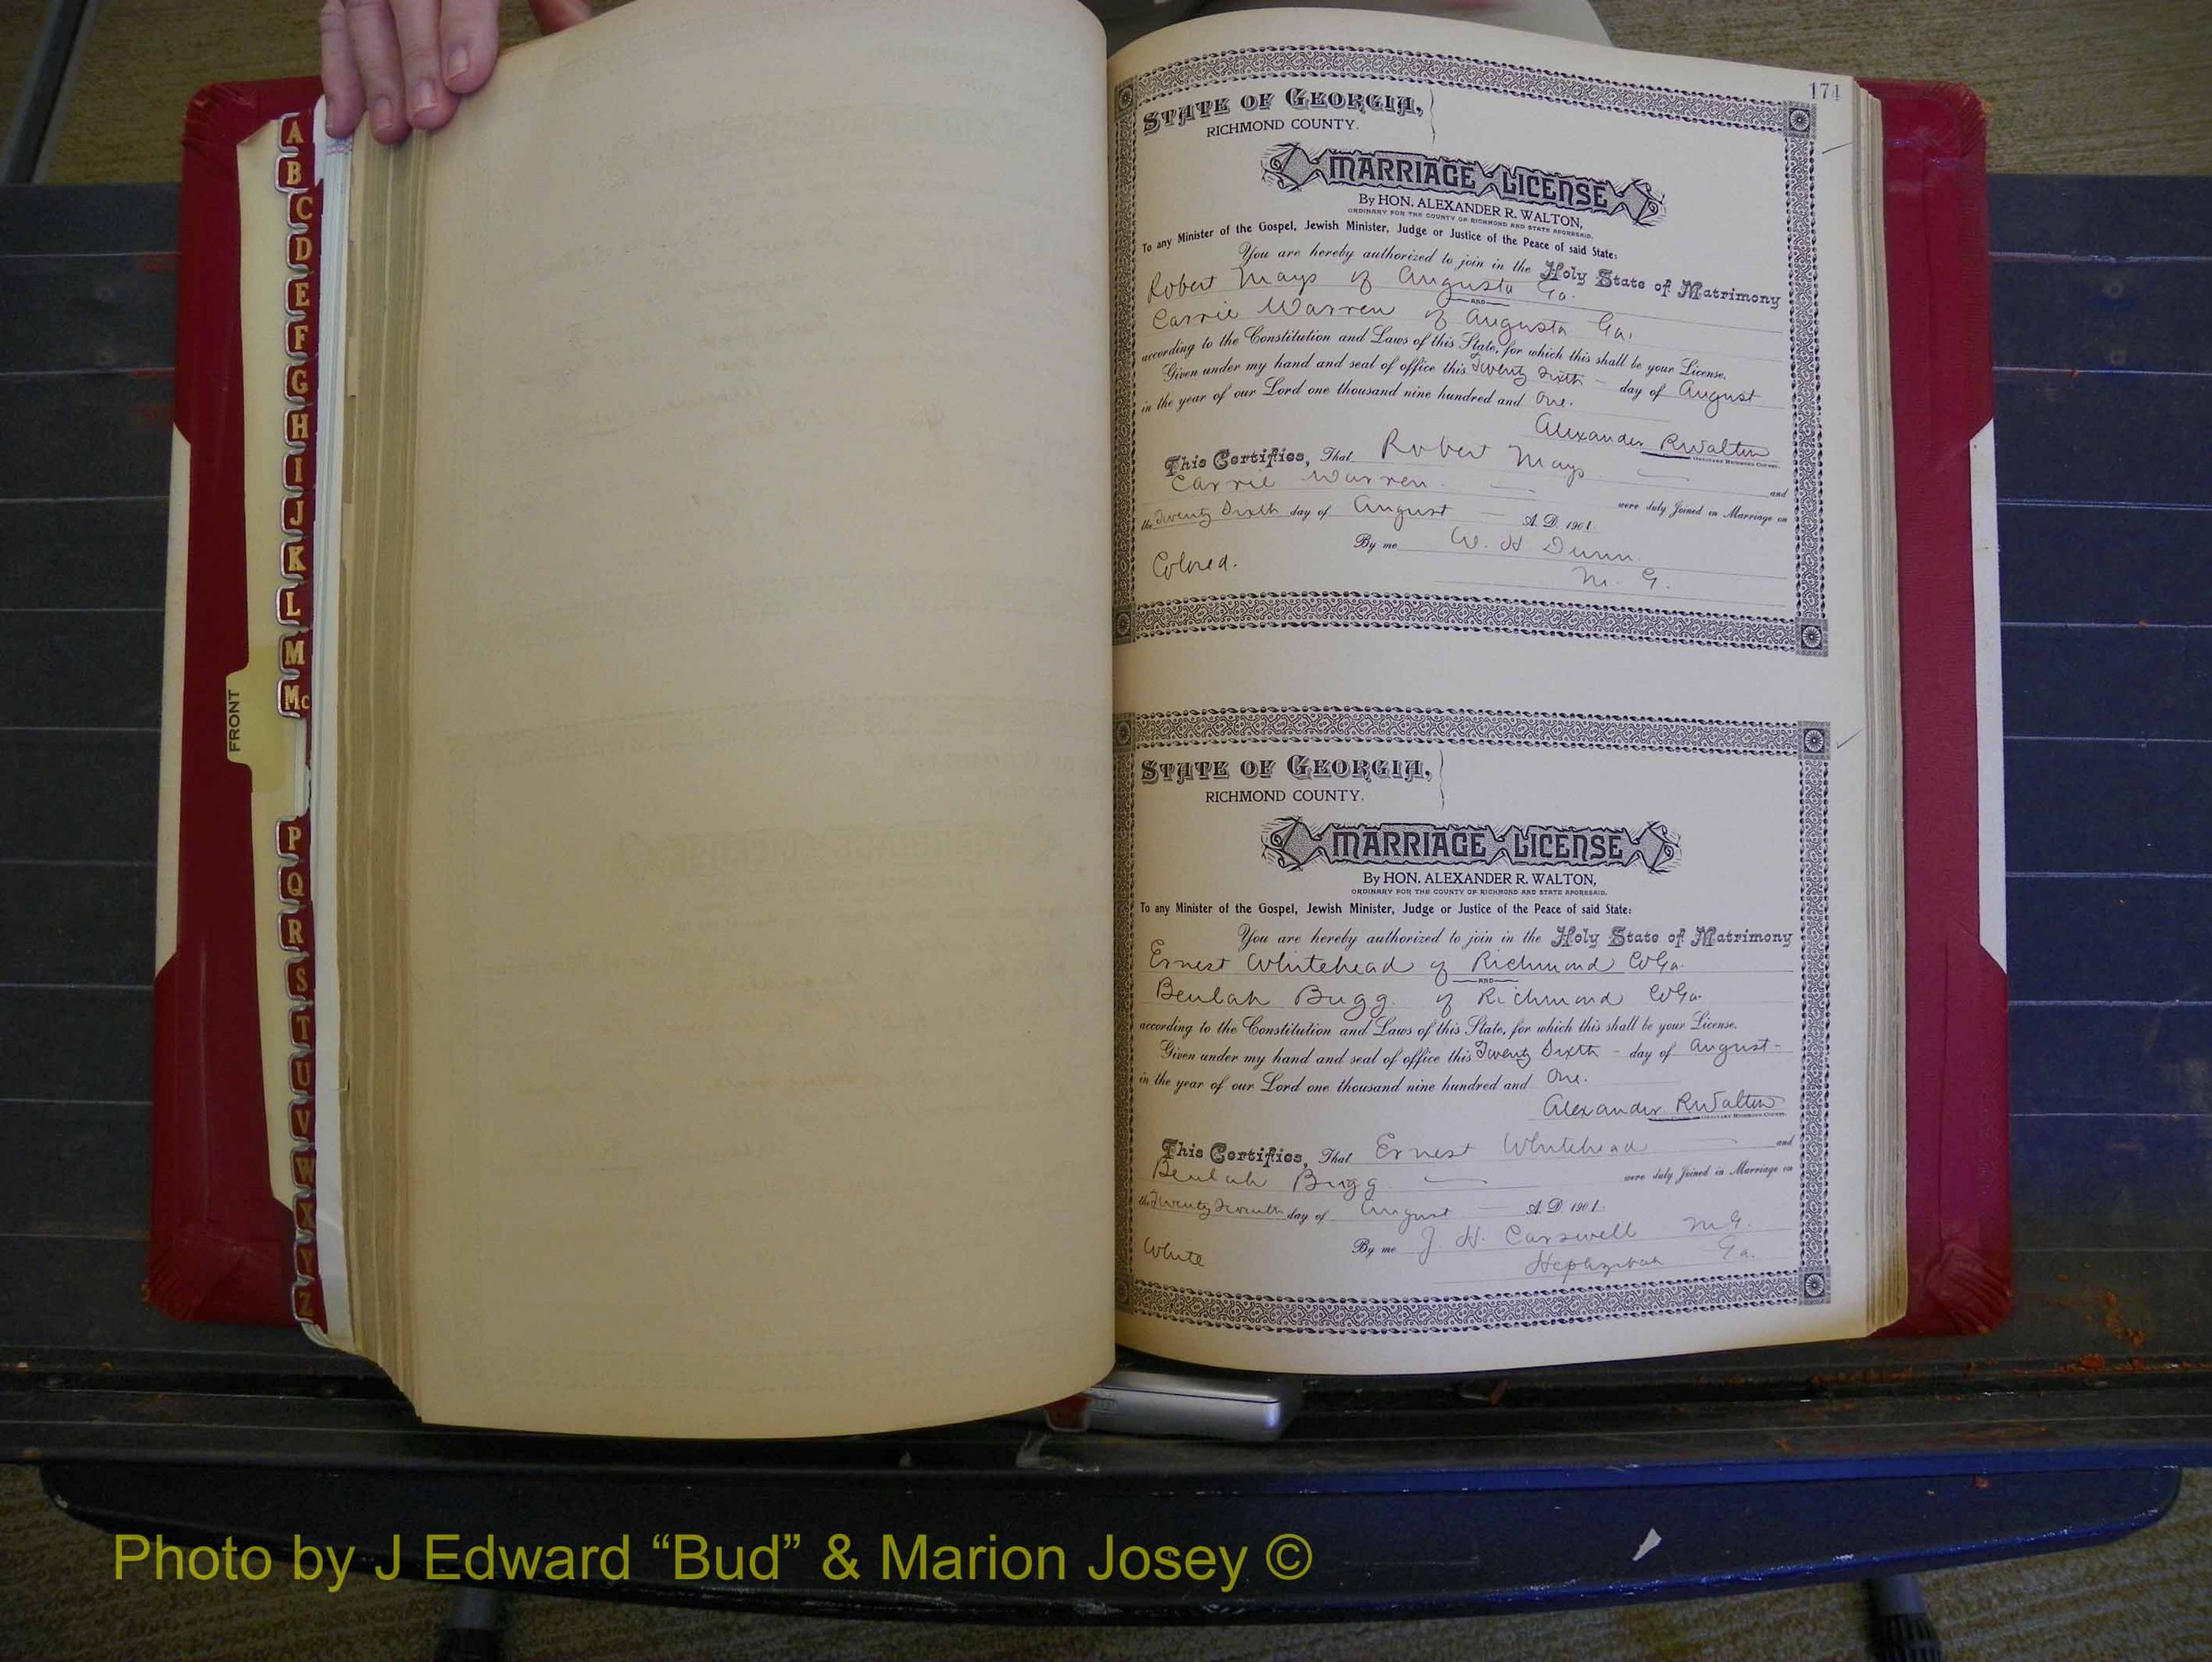 A
B
C
D
E
F
G
H
I
J
K
L
M
Mc
P
Q
R
S
T
U
V
W
X
Y
Z
FRONT
174
STATE OF GEORGIA,
RICHMOND COUNTY.
MARRIAGE LICENSE
By HON. ALEXANDER R. WALTON,
ORDINARY FOR THE COUNTY OF RICHMOND AND STATE AFORESAID.
To any Minister of the Gospel, Jewish Minister, Judge or Justice of the Peace of said State:
You are hereby authorized to join in the Holy State of Matrimony
Robert Mays of Augusta Ga.
AND
Carrie Warren of Augusta Ga.
according to the Constitution and Laws of this State, for which this shall be your License.
Given under my hand and seal of office this Twenty Sixth - day of August
in the year of our Lord one thousand nine hundred and One.
Alexander R Walton
ORDINARY RICHMOND COUNTY.
This Certifies, That Robert Mays and
Carrie Warren. were duly Joined in Marriage on
the Twenty Sixth day of August A. D. 1901.
By me W. H Dunn.
Colored. M. G.
STATE OF GEORGIA,
RICHMOND COUNTY.
MARRIAGE LICENSE
By HON. ALEXANDER R. WALTON,
ORDINARY FOR THE COUNTY OF RICHMOND AND STATE AFORESAID.
To any Minister of the Gospel, Jewish Minister, Judge or Justice of the Peace of said State:
You are hereby authorized to join in the Holy State of Matrimony
Ernest Whitehead of Richmond Co Ga.
AND
Beulah Bugg. of Richmond Co Ga.
according to the Constitution and Laws of this State, for which this shall be your License.
Given under my hand and seal of office this Twenty Sixth - day of August -
in the year of our Lord one thousand nine hundred and One.
Alexander R Walton
ORDINARY RICHMOND COUNTY.
This Certifies, That Ernest Whitehead and
Beulah Bugg were duly Joined in Marriage on
the Twenty Seventh day of August A. D. 1901.
By me J. H. Carswell M G.
White Hephzibah Ga.
Photo by J Edward “Bud” & Marion Josey ©